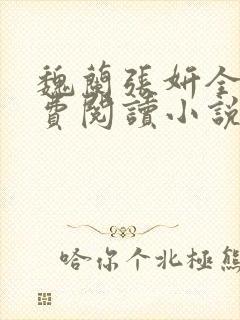 魏蘭張妍全
費閱讀小說
哈你个北極熊